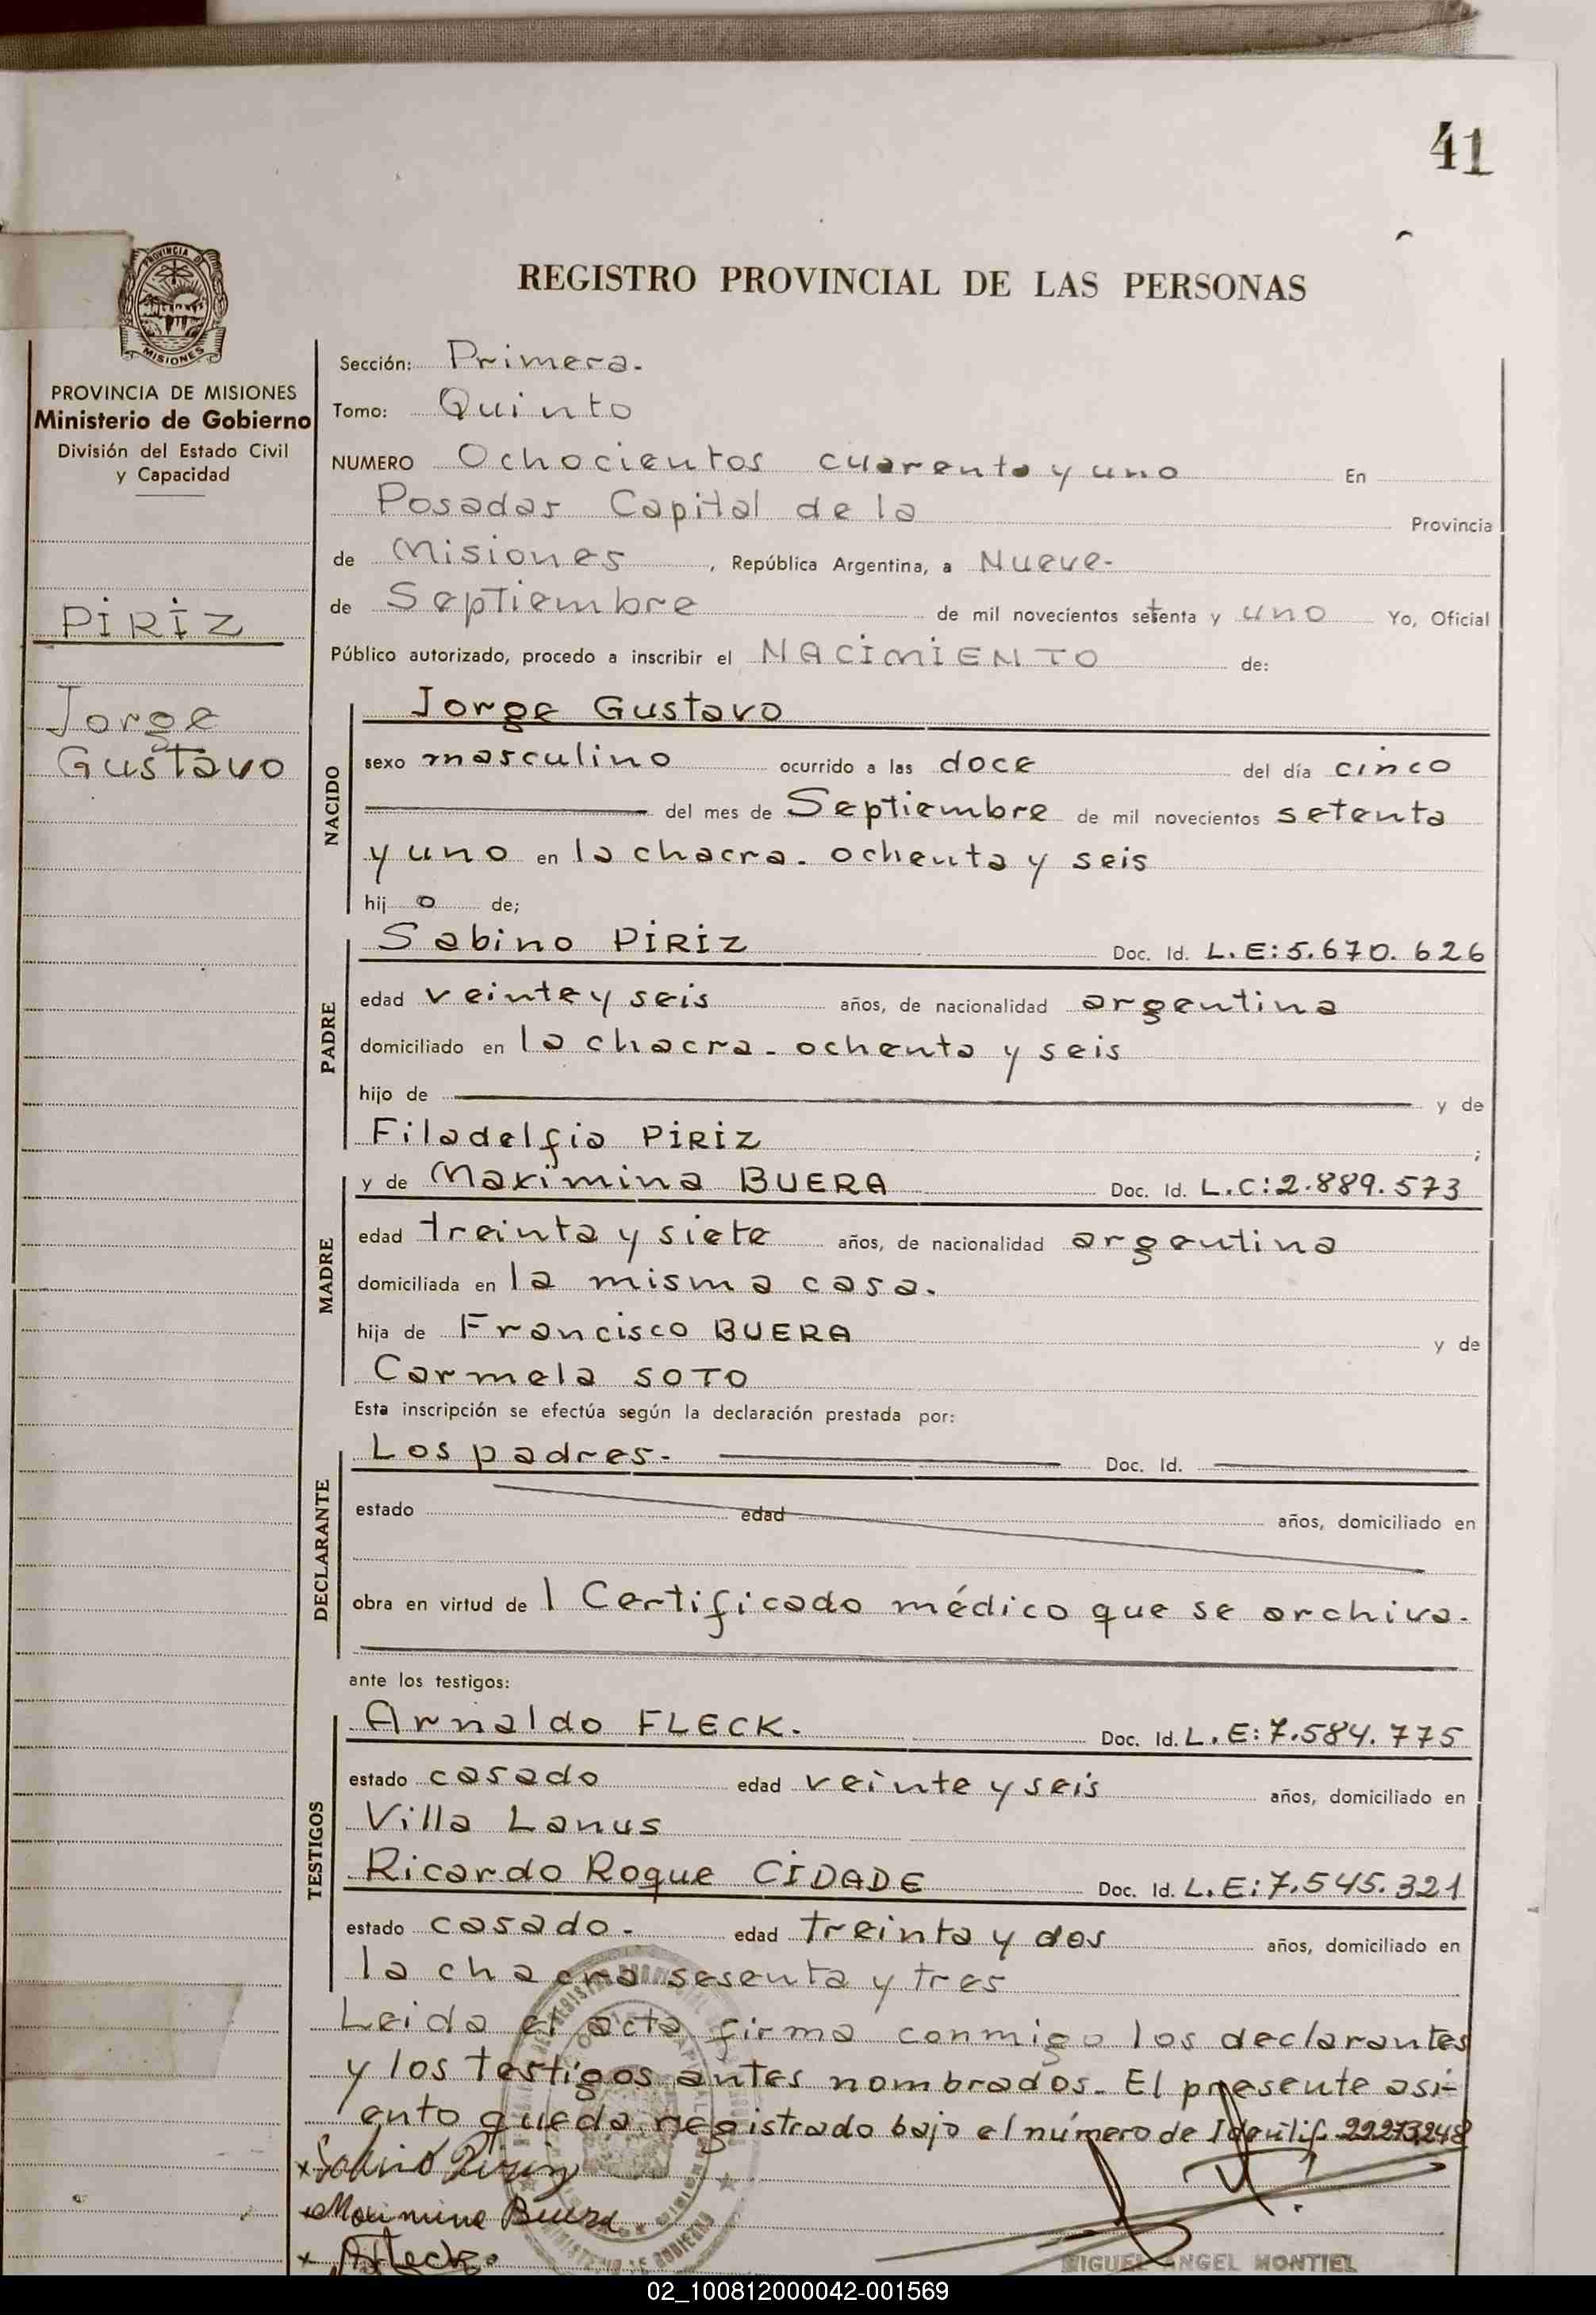 41
REGISTRO PROVINCIAL DE LAS PERSONAS
PROVINCIA DE MISIONES
Ministerio de Gobierno
División del Estado Civil
y Capacidad
PIRIZ
Jorge
Gustavo
Sección: Primera.
Tomo: Quinto
NUMERO Ochocientos cuarenta y uno En
Posadas Capital de la Provincia
de Misiones, República Argentina, a Nueve-
de Septiembre de mil novecientos setenta y uno Yo, Oficial
Público autorizado, procedo a inscribir el NACIMIENTO de:
NACIDO
Jorge Gustavo
sexo masculino ocurrido a las doce del día cinco
del mes de Septiembre de mil novecientos setenta
y uno en la chacra. ochenta y seis
hij o de;
PADRE
Sabino PIRIZ Doc. Id. L.E: 5.670.626
edad veinte y seis años, de nacionalidad argentina
domiciliado en la chacra. ochenta y seis
hijo de y de
Filadelfia PIRIZ ;
MADRE
y de Maximina BUERA Doc. Id. L.C: 2.889.573
edad treinta y siete años, de nacionalidad argentina
domiciliada en la misma casa.
hija de Francisco BUERA y de
Carmela SOTO
Esta inscripción se efectúa según la declaración prestada por:
DECLARANTE
Los padres. Doc. Id.
estado edad años, domiciliado en
obra en virtud de l Certificado médico que se archiva.
ante los testigos:
TESTIGOS
Arnaldo FLECK. Doc. Id. L.E: 7.584.775
estado casado edad veinte y seis años, domiciliado en
Villa Lanus
Ricardo Roque CIDADE Doc. Id. L.E: 7.545.321
estado casado. edad treinta y dos años, domiciliado en
la chacra sesenta y tres
Leida el acta firma conmigo los declarantes
y los testigos antes nombrados. El presente asi-
ento queda registrado bajo el número de Identif. 22.273.248
x Sabino Piriz
x Maximina Buera
x AFleck.
MIGUEL ANGEL MONTIEL
02_100812000042-001569